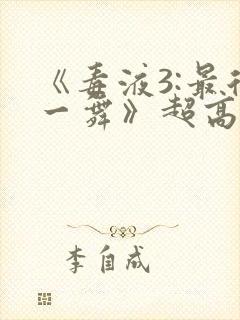 《毒液3:最
一舞》超高
李自成